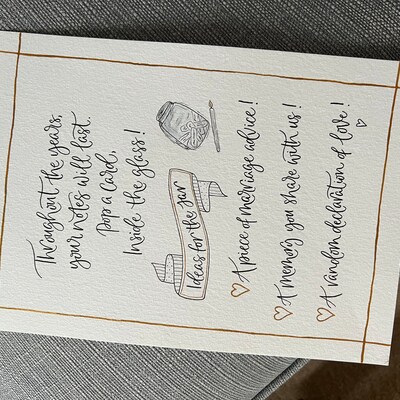 Throughout the years,
your notes will last.
Pop a card,
Inside the glass!
Ideas for the jar
A piece of marriage advice!
A memory you share with us!
A random declaration of love!